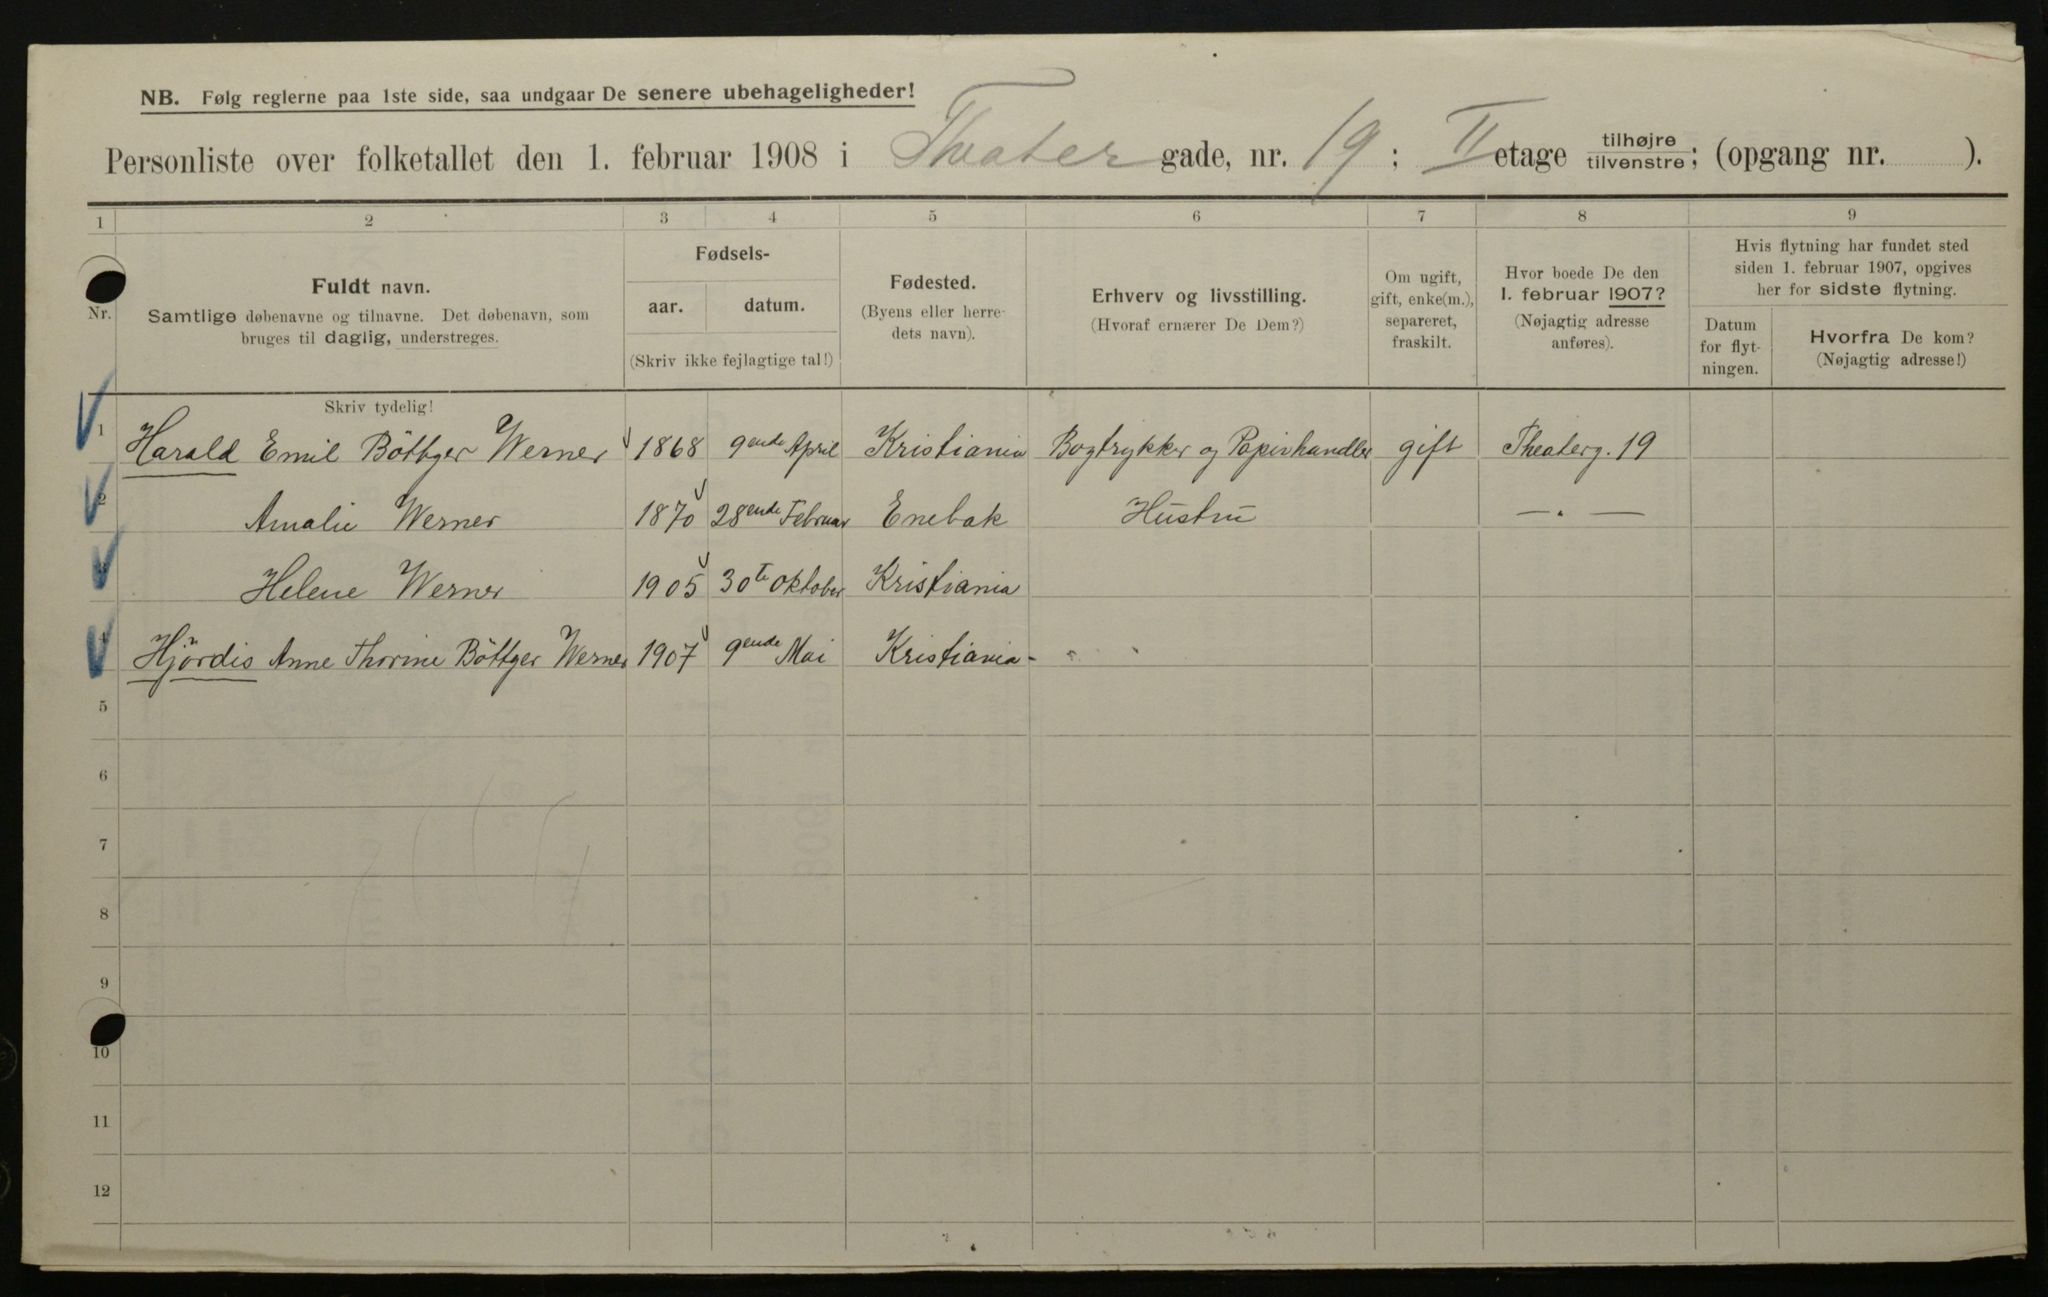 NB. Følg reglerne paa 1ste side, saa undgaar De senere ubehageligheder!
Personliste over folketallet den 1. februar 1908 i Theater gade, nr. 19; II etage tilhøjre tilvenstre; (opgang nr. ).
1 2 3 4 5 6 7 8 9
Nr.
Fuldt navn.
Samtlige døbenavne og tilnavne. Det døbenavn, som
bruges til daglig, understreges.
Fødsels-
aar. datum.
(Skriv ikke fejlagtige tal!)
Fødested.
(Byens eller herre-
dets navn).
Erhverv og livsstilling.
(Hvoraf ernærer De Dem?)
Om ugift,
gift, enke(m.),
separeret,
fraskilt.
Hvor boede De den
1. februar 1907?
(Nøjagtig adresse
anføres).
Hvis flytning har fundet sted
siden 1. februar 1907, opgives
her for sidste flytning.
Datum
for flyt-
ningen.
Hvorfra De kom?
(Nøjagtig adresse!)
Skriv tydelig!
1 Harald Emil Böttger Werner 1868 9ende April Kristiania Bogtrykker og Papirhandler gift Theaterg. 19
2 Amalie Werner 1870 28ende Februar Enebak Hustru — . —
3 Helene Werner 1905 30te Oktober Kristiania
4 Hjördis Anne Thorine Böttger Werner 1907 9ende Mai Kristiania -
5
6
7
8
9
10
11
12